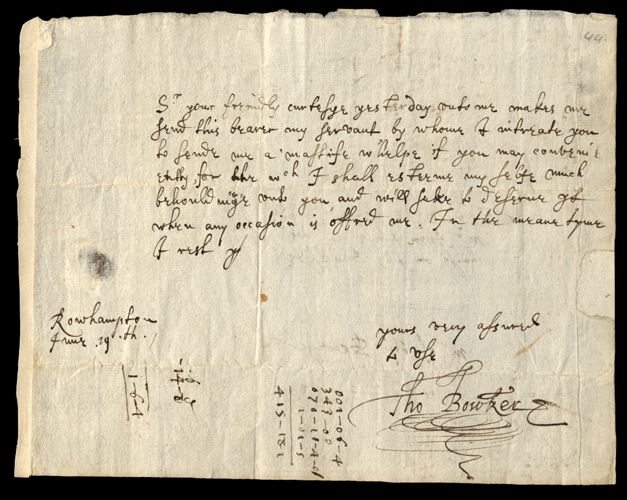 44.
Sr your frendly curtesye yesterday unto me makes me
send this bearer my servant by whome I intreate you
to sende me a mastife whelpe if you may conveni
ently, for the wch I shall esteeme my selfe much
behoulding unto you and will seke to deserve yt
when any occasion is offred me. In the meane tyme
I rest
Rowhampton
June 19th.
yours very assured
to use
Tho Bowker
1-6-4
002-06-4
343-00
415-18-1